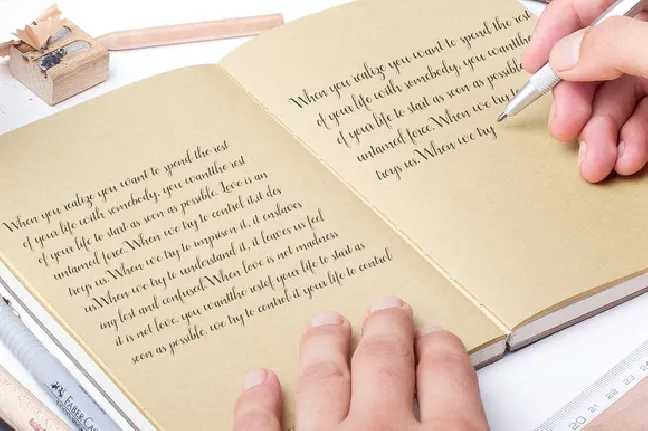 When you realize you want to spend the rest
of your life with somebody, you wantthe rest
of your life to start as soon as possible. Love is an
untamed force. When we try to control it,it des
troys us. When we try to imprison it, it enslaves
us.When we try to understand it, it leaves us feel
ing lost and confused.When love is not madness
it is not love. you wantthe restof your life to start as
soon as possible. we try to control it your life to control
When you realize you want to spend the rest
of your life with somebody, you wantthe
of your life to start as soon as possible
untamed force. When we try to
troys us. When we try
FABER-CAS
20
21